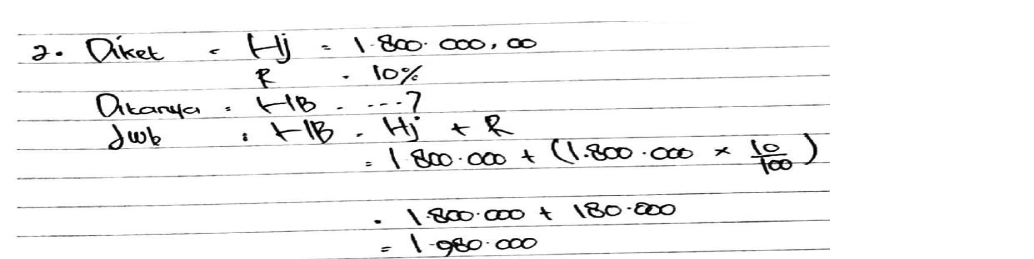 2. Diket = Hj = 1.800.000,00
R = 10%
Ditanya = HB = ...?
Jwb : HB = Hj + R
= 1.800.000 + (1.800.000 × 10/100)
= 1.800.000 + 180.000
= 1.980.000